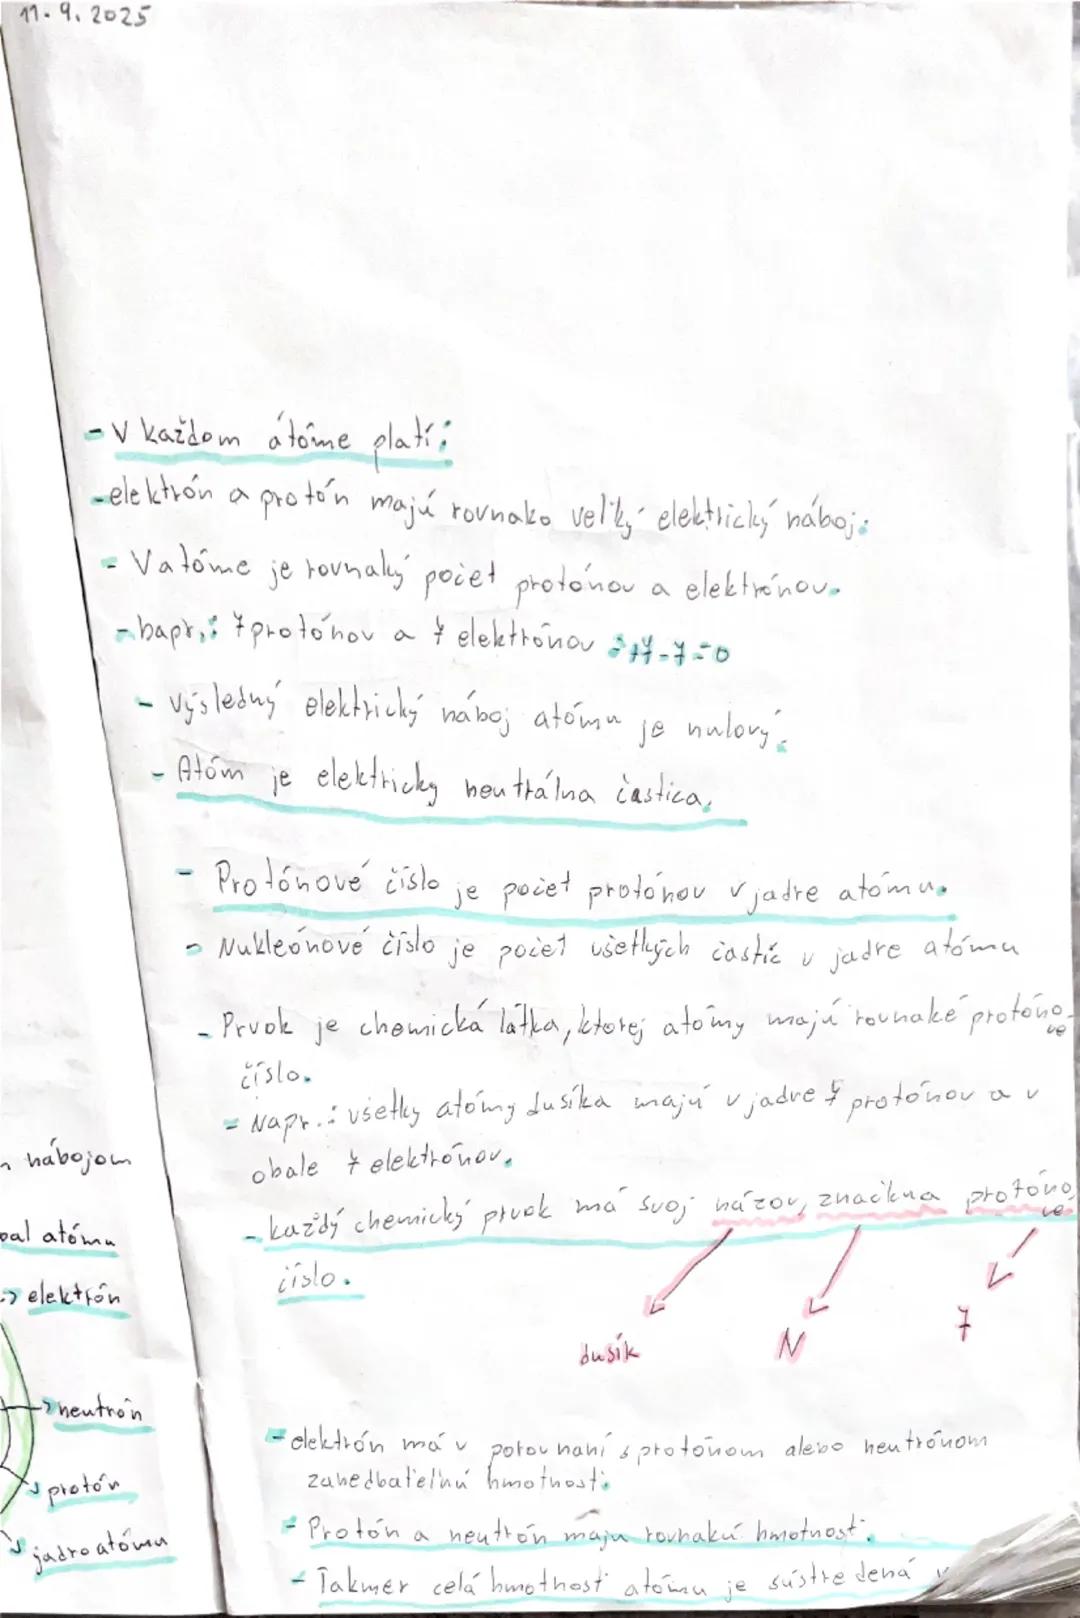 11. 9. 2025
- V každom átóme platí:
- elektrón a protón majú rovnako veľký elektrický náboj.
- V atóme je rovnaký počet protónov a elektrónov.
- napr.: 7 protónov a 7 elektrónov = +7-7=0
- Výsledný elektrický náboj atómu je nulový.
- Atóm je elektricky neutrálna častica.
- Protónové číslo je počet protónov v jadre atómu.
- Nukleónové číslo je počet všetkých častíc v jadre atómu
- Prvok je chemická látka, ktorej atómy majú rovnaké protóno-
vé
číslo.
- Napr.: všetky atómy dusíka majú v jadre 7 protónov a v
obale 7 elektrónov.
- každý chemický prvok má svoj názov, značku a protóno
vé
číslo.
dusík N 7
- elektrón má v porovnaní s protónom alebo neutrónom
zanedbateľnú hmotnosť.
- Protón a neutrón majú rovnakú hmotnosť.
- Takmer celá hmotnosť atómu je sústredená v
nábojom
obal atómu
-> elektrón
-> neutrón
protón
jadro atómu